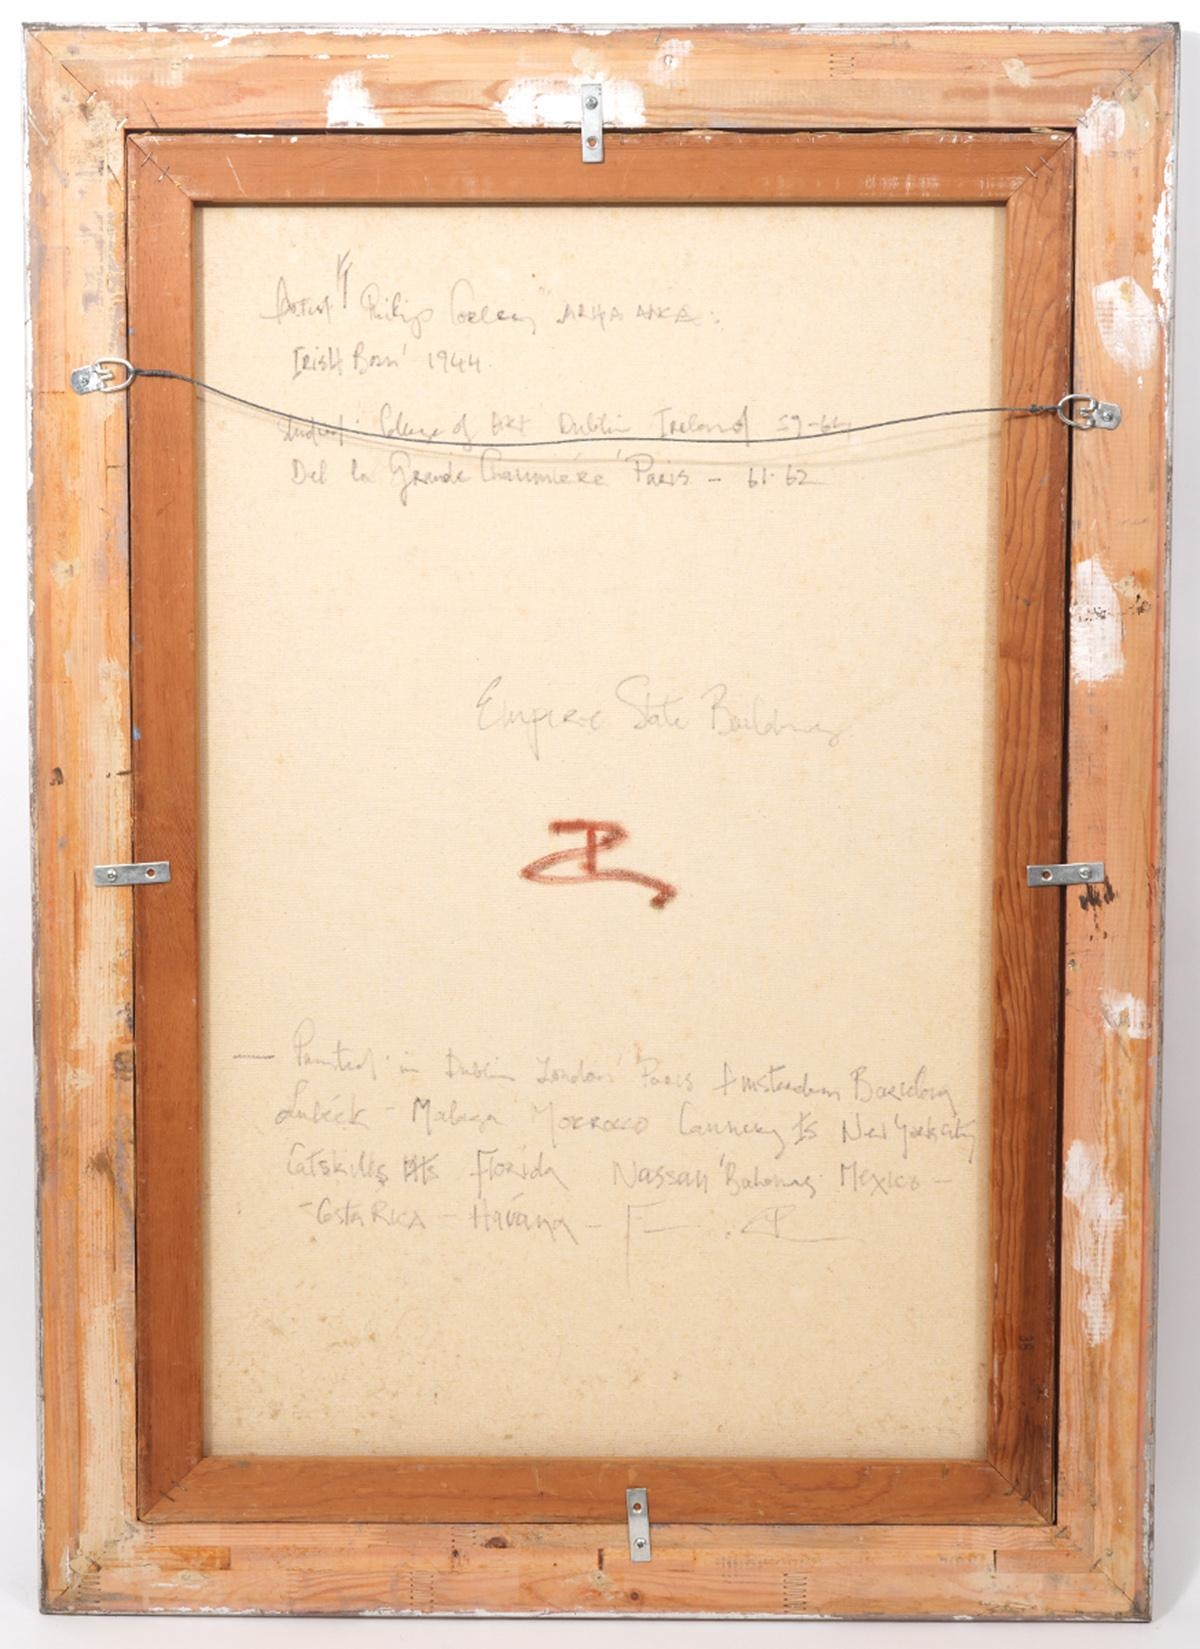 Artist Philip ARHA ANCA:
Irish Born' 1944.
Studied. College of Art Dublin Ireland 59-64
Del la Grande Chaumiére' Paris - 61-62
Empire State Building
— Painted in Dublin London' Paris Amsterdam Barcelona
Lubéck - Malaga Morrocco Cannery Is New York City
Catskills Mts Florida Nassau 'Bahamas Mexico -
- Costa Rica - Havana -